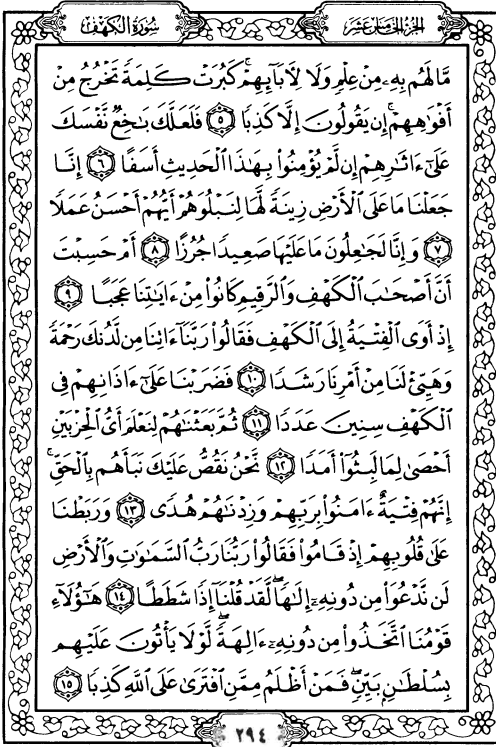 الجزء الخامس عشر
سورة الكهف
مَّا لَهُم بِهِۦ مِنْ عِلْمٍ وَلَا لِـَٔابَآئِهِمْ ۚ كَبُرَتْ كَلِمَةً تَخْرُجُ مِنْ
أَفْوَٰهِهِمْ ۚ إِن يَقُولُونَ إِلَّا كَذِبًا ٥ فَلَعَلَّكَ بَٰخِعٌ نَّفْسَكَ
عَلَىٰٓ ءَاثَٰرِهِمْ إِن لَّمْ يُؤْمِنُوا۟ بِهَٰذَا ٱلْحَدِيثِ أَسَفًا ٦ إِنَّا
جَعَلْنَا مَا عَلَى ٱلْأَرْضِ زِينَةً لَّهَا لِنَبْلُوَهُمْ أَيُّهُمْ أَحْسَنُ عَمَلًا
٧ وَإِنَّا لَجَٰعِلُونَ مَا عَلَيْهَا صَعِيدًا جُرُزًا ٨ أَمْ حَسِبْتَ
أَنَّ أَصْحَٰبَ ٱلْكَهْفِ وَٱلرَّقِيمِ كَانُوا۟ مِنْ ءَايَٰتِنَا عَجَبًا ٩
إِذْ أَوَى ٱلْفِتْيَةُ إِلَى ٱلْكَهْفِ فَقَالُوا۟ رَبَّنَآ ءَاتِنَا مِن لَّدُنكَ رَحْمَةً
وَهَيِّئْ لَنَا مِنْ أَمْرِنَا رَشَدًا ١٠ فَضَرَبْنَا عَلَىٰٓ ءَاذَانِهِمْ فِى
ٱلْكَهْفِ سِنِينَ عَدَدًا ١١ ثُمَّ بَعَثْنَٰهُمْ لِنَعْلَمَ أَىُّ ٱلْحِزْبَيْنِ
أَحْصَىٰ لِمَا لَبِثُوٓا۟ أَمَدًا ١٢ نَّحْنُ نَقُصُّ عَلَيْكَ نَبَأَهُم بِٱلْحَقِّ ۚ
إِنَّهُمْ فِتْيَةٌ ءَامَنُوا۟ بِرَبِّهِمْ وَزِدْنَٰهُمْ هُدًى ١٣ وَرَبَطْنَا
عَلَىٰ قُلُوبِهِمْ إِذْ قَامُوا۟ فَقَالُوا۟ رَبُّنَا رَبُّ ٱلسَّمَٰوَٰتِ وَٱلْأَرْضِ
لَن نَّدْعُوَا۟ مِن دُونِهِۦٓ إِلَٰهًا ۖ لَّقَدْ قُلْنَآ إِذًا شَطَطًا ١٤ هَٰٓؤُلَآءِ
قَوْمُنَا ٱتَّخَذُوا۟ مِن دُونِهِۦٓ ءَالِهَةً ۖ لَّوْلَا يَأْتُونَ عَلَيْهِم
بِسُلْطَٰنٍۭ بَيِّنٍ ۖ فَمَنْ أَظْلَمُ مِمَّنِ ٱفْتَرَىٰ عَلَى ٱللَّهِ كَذِبًا ١٥
٢٩٤